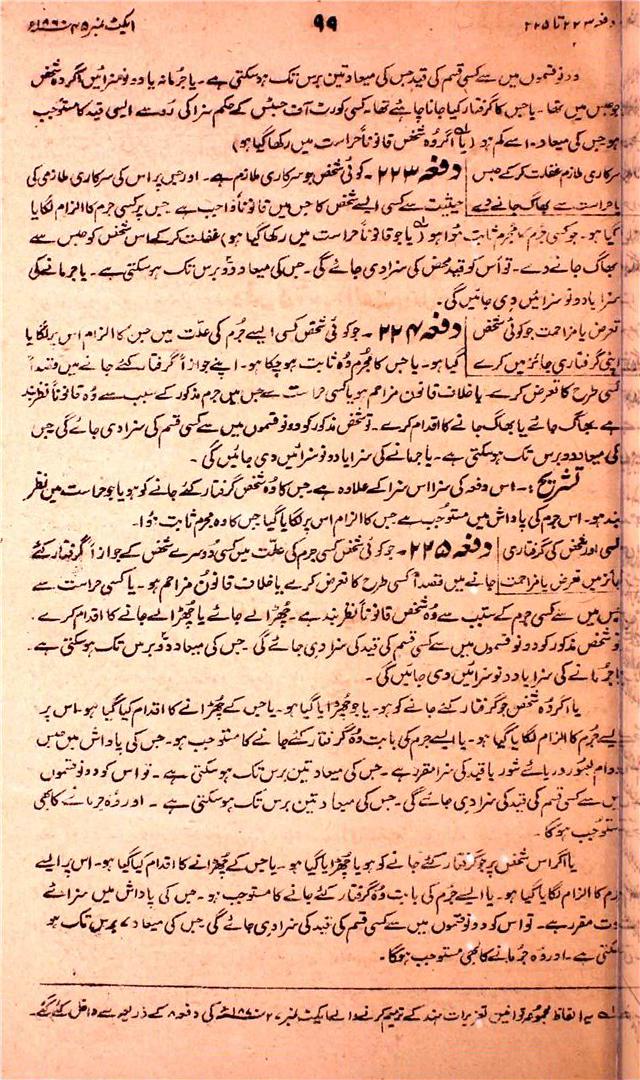 دفعہ ۲۲۳ تا ۲۲۵
۹۹
ایکٹ نمبر ۴۵ ۱۸۶۰ء
دونو قسموں میں سے کسی قسم کی قید جس کی میعاد تین برس تک ہوسکتی ہے۔ یا جرمانہ یا دونو سزائیں اگر وہ شخص
حبس میں تھا۔ یا جس کا گرفتار کیا جانا چاہئے تھا۔ کسی کورٹ آف جسٹس کے حکم سزا کی رو سے ایسی قید کا مستوجب
ہو جس کی میعاد ۱۰ سے کم ہو (یا اگر وہ شخص قانوناً حراست میں رکھا گیا ہو)
سرکاری ملازم غفلت کر کے حبس
یا حراست سے بھاگ جانے دے
دفعہ ۲۲۳۔ کوئی شخص جو سرکاری ملازم ہے۔ اور جس پر اس کی سرکاری ملازمی کی
حیثیت سے کسی ایسے شخص کا حبس میں قانوناً واجب ہے جس پر کسی جرم کا الزام لگایا
گیا ہو۔ جو کسی جرم کا مجرم ثابت ہوا ہو (یا جو قانوناً حراست میں رکھا گیا ہو) غفلت کر کے اس شخص کو حبس سے
بھاگ جانے دے۔ تو اُس کو قید محض کی سزا دی جائے گی۔ جس کی میعاد دو برس تک ہوسکتی ہے۔ یا جرمانے کی
سزا یا دونو سزائیں دی جائیں گی۔
تعرض یا مزاحمت جو کوئی شخص
اپنی گرفتاری جائز میں کرے
دفعہ ۲۲۴۔ جو کوئی شخص کسی ایسے جُرم کی علّت میں جس کا الزام اس پر لگایا
گیا ہو۔ یا جس کا مجرم وُہ ثابت ہو چکا ہو۔ اپنے جوازاً گرفتار کئے جانے میں قصداً
کسی طرح کا تعرض کرے۔ یا خلاف قانون مزاحم ہو یا کسی حراست سے جس میں جرم مذکور کے سبب سے وُہ قانوناً نظربند
ہے بھاگ جائے یا بھاگ جانے کا اقدام کرے۔ تو شخص مذکور کو دونو قسموں میں سے کسی قسم کی سزا دی جائے گی جس
کی میعاد دو برس تک ہوسکتی ہے۔ یا جرمانے کی سزا یا دونو سزائیں دی جائیں گی۔
تشریح :۔ اس دفعہ کی سزا اس سزا کے علاوہ ہے جس کا وُہ شخص گرفتار کئے جانے کو ہو یا جو حراست میں نظر
بند ہو۔ اس جرم کی پاداش میں مستوجب ہے جس کا الزام اس پر لگایا گیا جس کا وہ مجرم ثابت ہوا۔
کسی اور شخص کی گرفتاری
جائز میں تعرض یا مزاحمت
دفعہ ۲۲۵۔ جو کوئی شخص کسی جرم کی علت میں کسی دُوسرے شخص کے جوازاً گرفتار کئے
جانے میں قصداً کسی طرح کا تعرض کرے یا خلاف قانون مزاحم ہو۔ یا کسی حراست سے
جس میں سے کسی جرم کے سبب سے وُہ شخص قانوناً نظر بند ہے۔ چُھڑا لے جائے یا چُھڑا لے جانے کا اقدام کرے۔
تو شخص مذکور کو دونو قسموں میں سے کسی قسم کی قید کی سزا دی جائے گی جس کی میعاد دو برس تک ہوسکتی ہے۔
یا جرمانے کی سزا یا دونو سزائیں دی جائیں گی۔
یا اگر وُہ شخص جو گرفتار کئے جانے کو ہو۔ یا جو چُھڑایا گیا ہو۔ یا جس کے چُھڑانے کا اقدام کیا گیا ہو۔ اس پر
ایسے جُرم کا الزام لگایا گیا ہو۔ یا ایسے جرم کی بابت وُہ گرفتار کئے جانے کا مستوجب ہو۔ جس کی پاداش میں حبس
دوام بعبور دریائے شور یا قید کی سزا مقرر ہے۔ جس کی میعاد تین برس تک ہوسکتی ہے۔ تو اس کو دونو قسموں
میں سے کسی قسم کی قید کی سزا دی جائے گی۔ جس کی میعاد تین برس تک ہوسکتی ہے۔ اور وُہ جرمانے کا بھی
مستوجب ہوگا۔
یا اگر اس شخص پر جو گرفتار کئے جانے کو ہو یا چھڑایا گیا ہو۔ یا جس کے چھڑانے کا اقدام کیا گیا ہو۔ اس پر ایسے
جرم کا الزام لگایا گیا ہو۔ یا ایسے جرم کی بابت وُہ گرفتار کئے جانے کا مستوجب ہو۔ جس کی پاداش میں سزائے
موت مقرر ہے۔ تو اس کو دونو قسموں میں سے کسی قسم کی قید کی سزا دی جائے گی جس کی میعاد ۷ برس تک ہو
سکتی ہے۔ اور وُہ جرمانے کا بھی مستوجب ہوگا۔
لے یہ الفاظ مجموعہ قوانین تعزیرات ہند کے ترمیم کرنے والے ایکٹ نمبر ۲۷ ۱۸۷۰ء کی دفعہ ۸ کے ذریعہ سے داخل کئے گئے۔